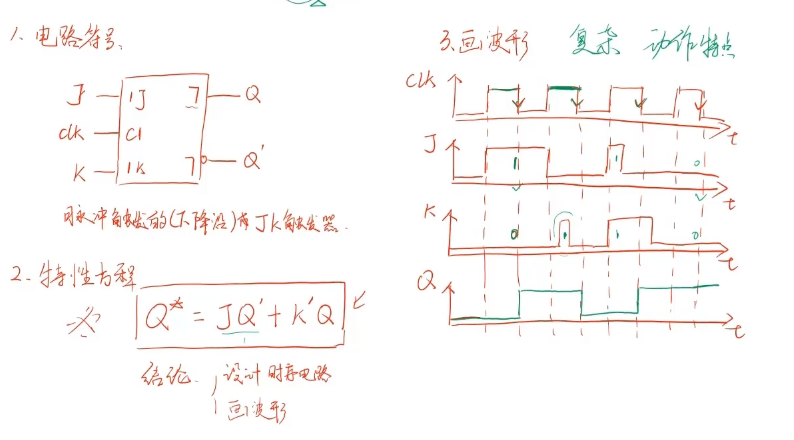 1. 电路符号.
J 1J ㄱ Q
clk C1
K 1K ㄱ Q'
脉冲触发的(下降沿) JK触发器.
2. 特性方程
Q* = JQ' + K'Q
结论. 设计时序电路
画波形
3. 画波形 复杂 动作特点
CLK
t
J 1 1 0
t
K 0 1 1 0
t
Q
t